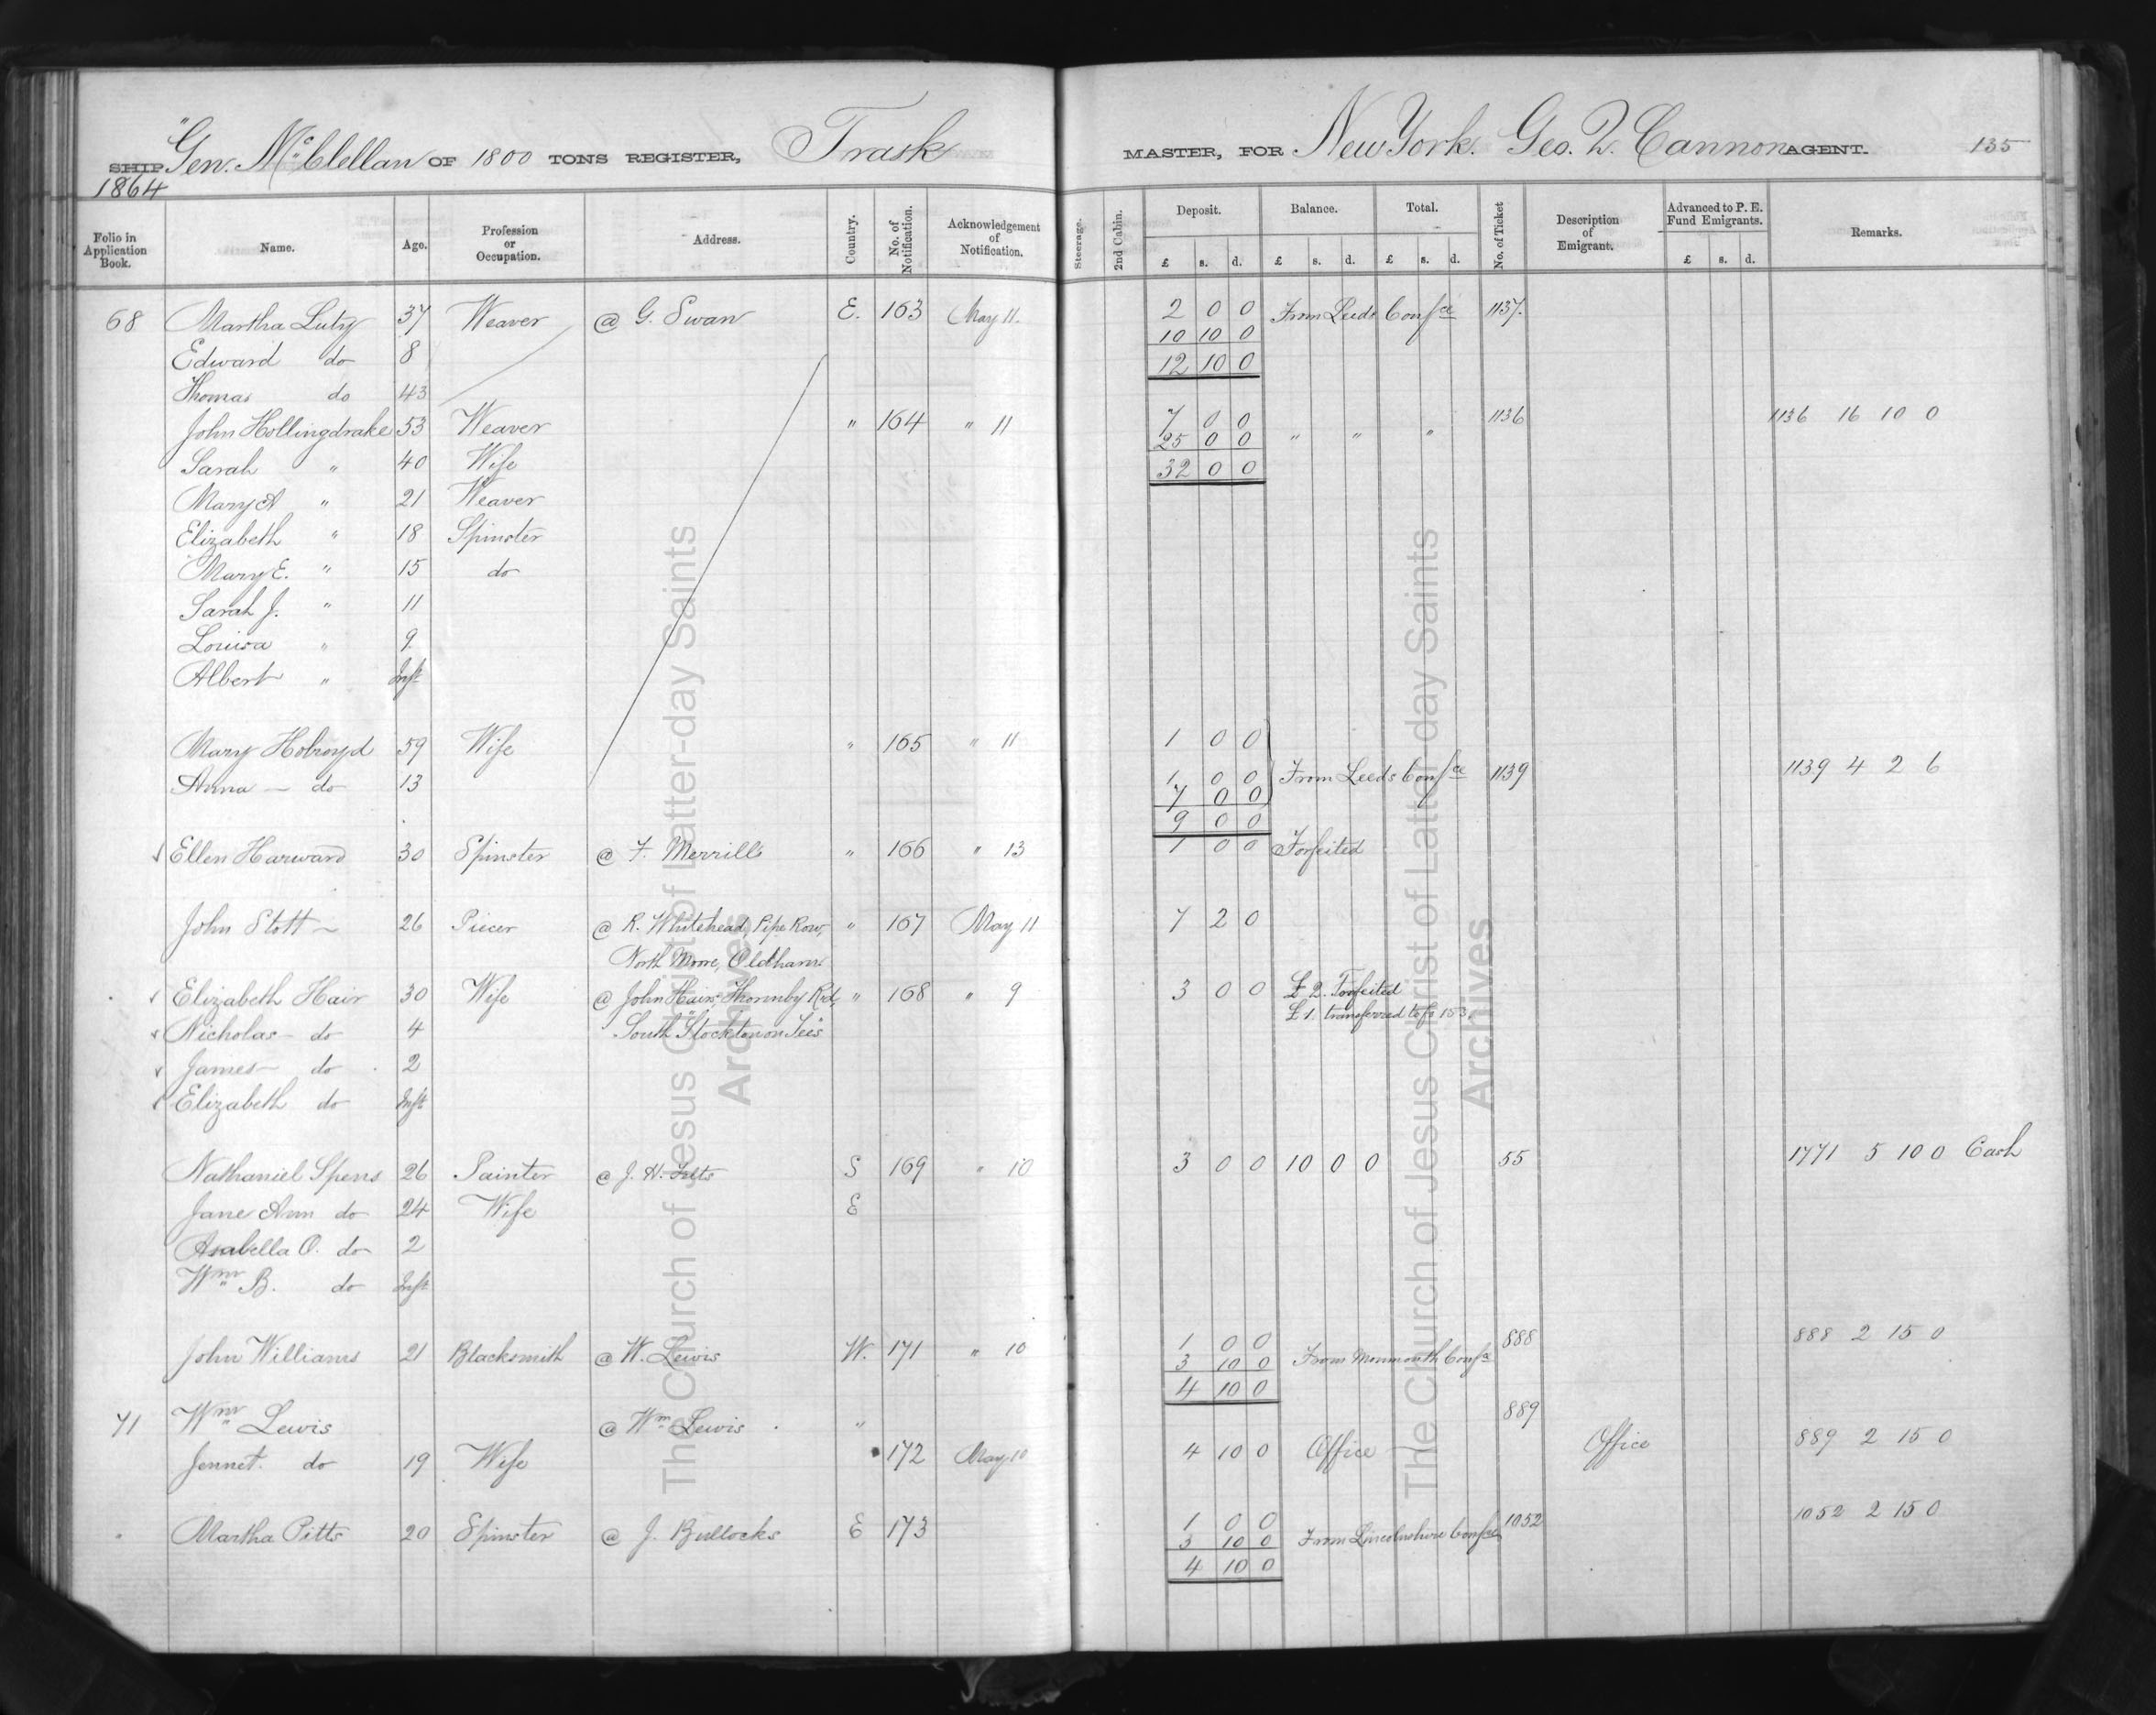 SHIP "Gen. McClellan OF 1800 TONS REGISTER, Trask MASTER, FOR New York. Geo. Q. Cannon AGENT. 135
1864
Folio in Application Book. Name. Age. Profession or Occupation. Address. Country. No. of Notification. Acknowledgement of Notification. Steerage. 2nd Cabin. Deposit. Balance. Total. No. of Ticket Description of Emigrant. Advanced to P. E. Fund Emigrants. Remarks.
£ s. d. £ s. d. £ s. d. £ s. d.
68 Martha Luty 37 Weaver @ G. Swan E. 163 May 11. 2 0 0 From Leeds Confce 1137.
10 10 0
Edward do 8 12 10 0
Thomas do 43
John Hollingdrake 53 Weaver " 164 " 11 7 0 0 1136 1136 16 10 0
25 0 0 " " "
Sarah " 40 Wife 32 0 0
Mary A " 21 Weaver
Elizabeth " 18 Spinster
Mary E. " 15 do
Sarah J. " 11
Louisa " 9
Albert " Inft
Mary Holroyd 59 Wife " 165 " 11 1 0 0
Anna - do 13 1 0 0 From Leeds Confce 1139 1139 4 2 6
7 0 0
9 0 0
Ellen Harward 30 Spinster @ F. Merrill's " 166 " 13 1 0 0 Forfeited
John Stott - 26 Piecer @ R. Whitehead, Pipe Row, " 167 May 11 7 2 0
North Moore, Oldham.
Elizabeth Hair 30 Wife @ John Hair, Thornby Rd, " 168 " 9 3 0 0 £2. Forfeited
£1. transferred to fo 153.
Nicholas - do 4 South Stockton on Tees
James - do 2
Elizabeth do Inft
Nathaniel Spens 26 Painter @ J. H. Felts S 169 " 10 3 0 0 10 0 0 55 1771 5 10 0 Cash
Jane Ann do 24 Wife E
Asabella O. do 2
Wm B. do Inft
John Williams 21 Blacksmith @ W. Lewis W. 171 " 10 1 0 0 888 888 2 15 0
3 10 0 From Monmouth Confce
4 10 0
71 Wm Lewis @ Wm Lewis " 889
Jennet. do 19 Wife 172 May 10 4 10 0 Office Office 889 2 15 0
Martha Pitts 20 Spinster @ J. Bullocks E 173 1 0 0 1052 1052 2 15 0
3 10 0 From Lincolnshire Confce
4 10 0
The Church of Jesus Christ of Latter-day Saints
Archives
The Church of Jesus Christ of Latter-day Saints
Archives